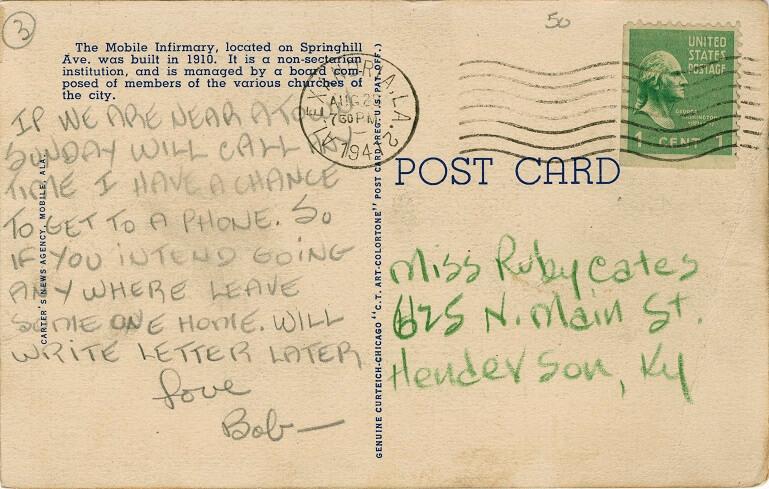 3
50
The Mobile Infirmary, located on Springhill
Ave. was built in 1910. It is a non-sectarian
institution, and is managed by a board com-
posed of members of the various churches of
the city.
IF WE ARE NEAR A
SUNDAY WILL CALL
TIME I HAVE A CHANCE
TO GET TO A PHONE. SO
IF YOU INTEND GOING
ANYWHERE LEAVE
SOME ONE HOME. WILL
WRITE LETTER LATER
Love
Bob—
CARTER'S NEWS AGENCY, MOBILE, ALA.
GENUINE CURTEICH-CHICAGO "C.T. ART-COLORTONE" POST CARD (REG. U.S. PAT. OFF.)
TEXARKANA, ARK. LA. 2
AUG
7 30 PM
194
UNITED
STATES
POSTAGE
GEORGE
WASHINGTON
1 CENT 1
POST CARD
Miss Ruby Cates
625 N. Main St.
Henderson, Ky